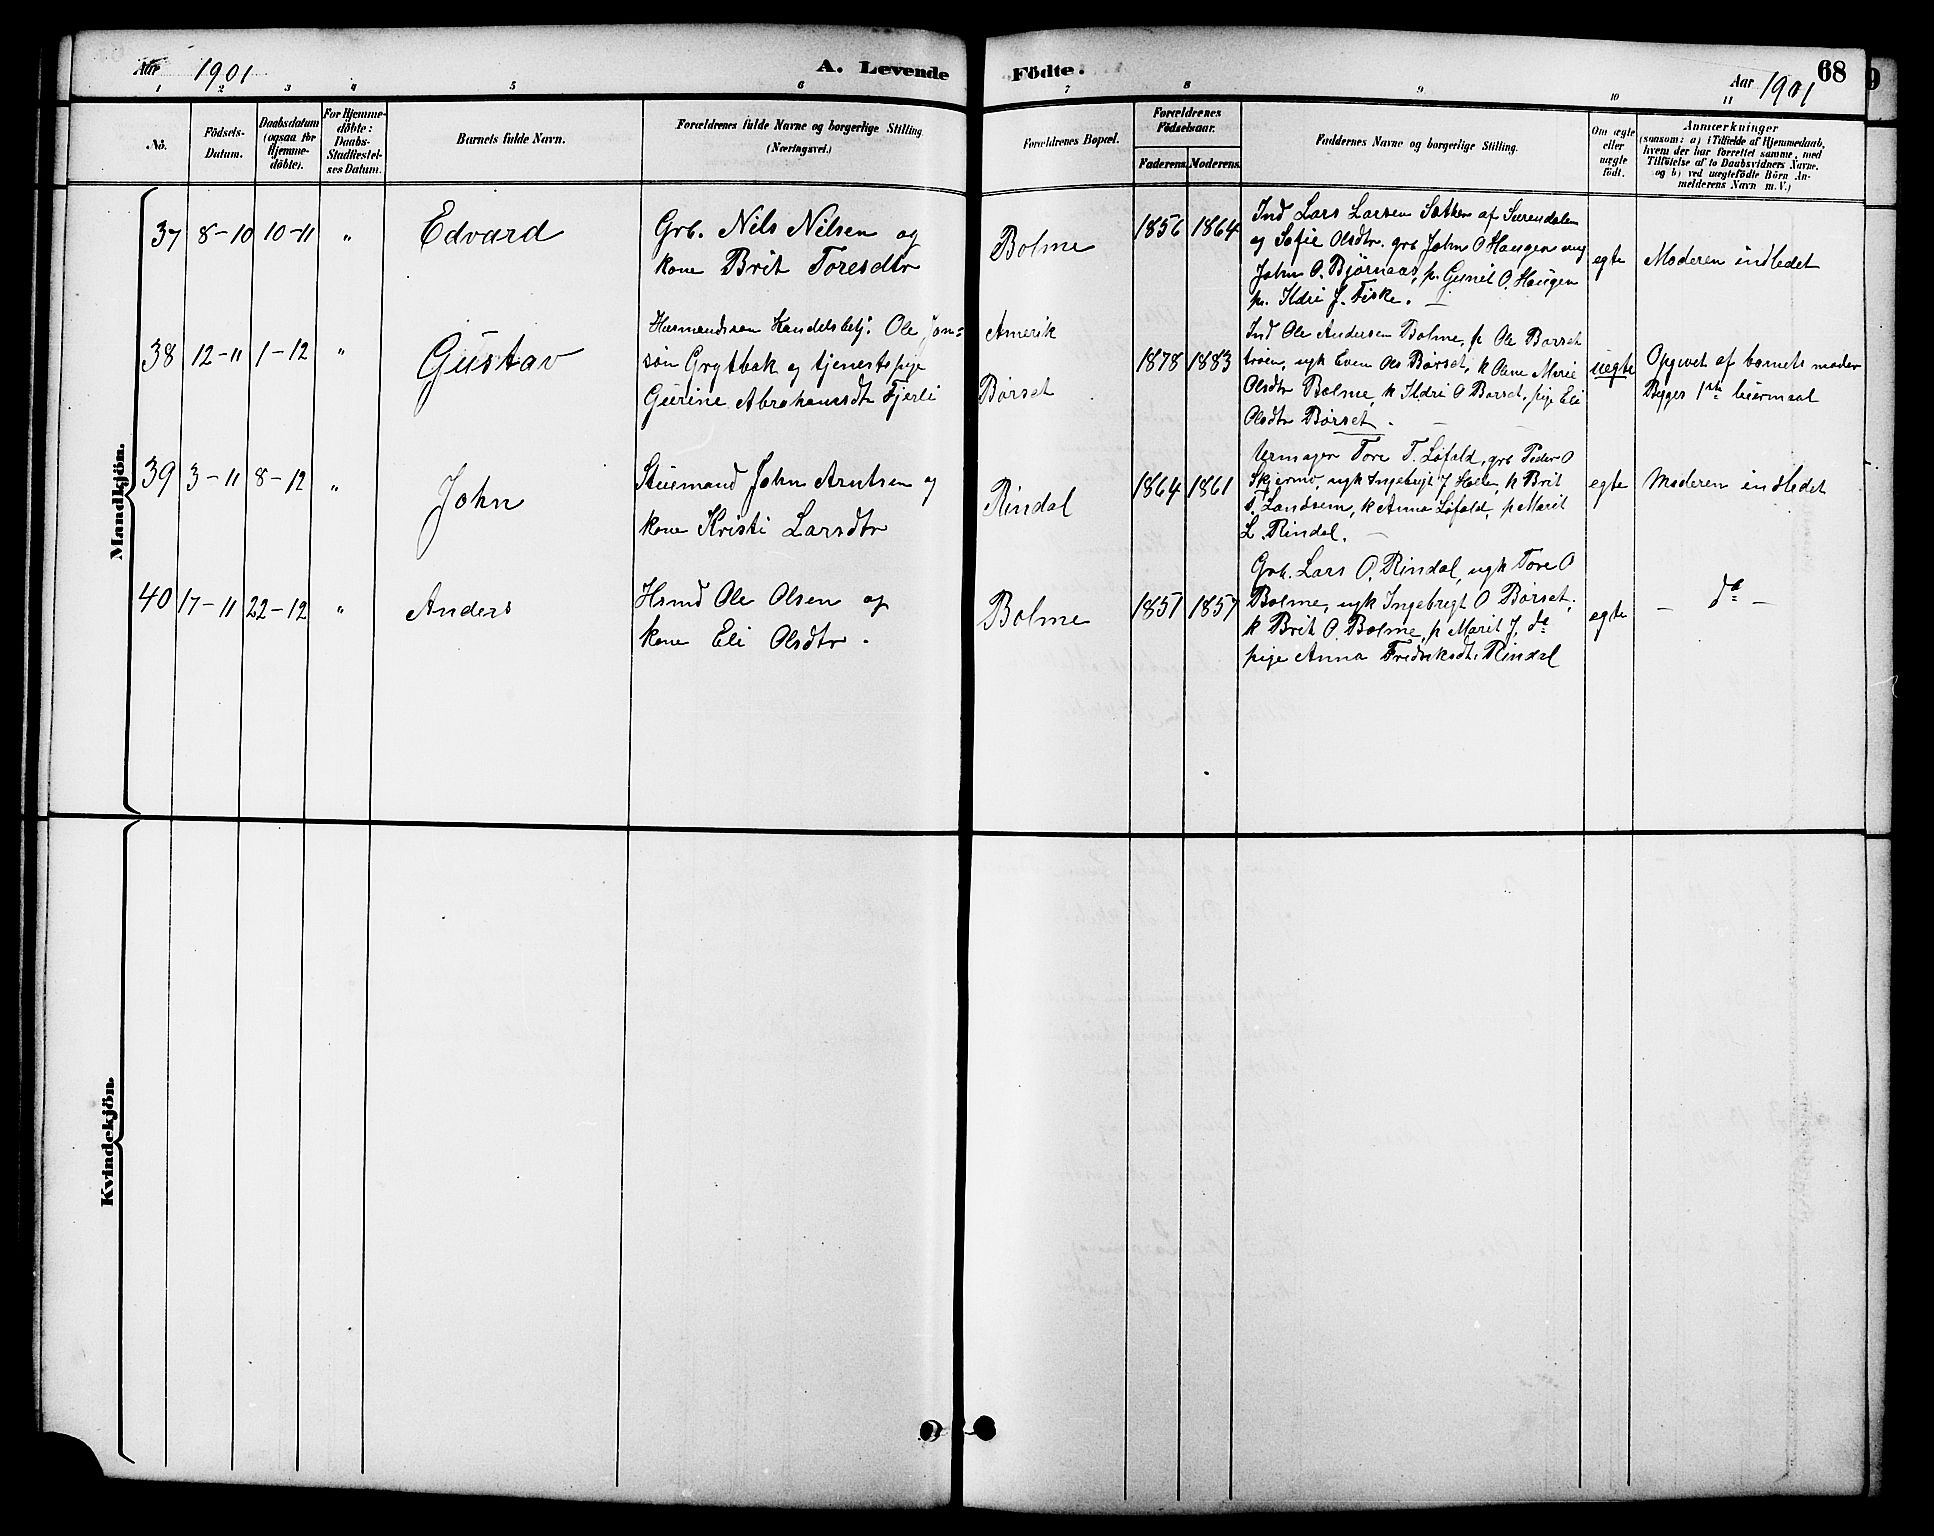 Aar 1901
A. Levende Födte.
Aar 1901
68
1 2 3 4 5 6 7 8 9 10 11
No.
Födsels-
Datum.
Daabsdatum
(ogsaa for
Hjemme-
döbte).
For Hjemme-
döbte:
Daabs-
Stadfæstel-
ses Datum.
Barnets fulde Navn.
Forældrenes fulde Navne og borgerlige Stilling
(Næringsvei.)
Forældrenes Bopæl.
Forældrenes
Födselsaar.
Faderens. Moderens.
Faddernes Navne og borgerlige Stilling.
Om ægte
eller
uægte
födt.
Anmærkninger
(saasom: a) i Tilfælde af Hjemmedaab,
hvem der har forrettet samme, med
Tilföielse af to Daabsvidners Navne,
og b) ved uægtefödte Börn An-
melderens Navn m. V.)
Mandkjön.
37 8-10 10-11 " Edvard
Grb. Nils Nilsen og
kone Brit Toresdtr
Bolme
1856 1864
Ind Lars Larsen Sæther af Surendalen
og Sofie Olsdtr. grb John O Haugen ung
John O. Bjørnaas, p. Gunil O. Haugen
p. Ildri J. Fiske. —
egte
Moderen indledet
38 12-11 1-12 " Gustav
Husmandssøn Handelsbetj. Ole Jon=
søn Grytbak og tjenestepige
Gurine Abrahamsdtr Fjerli
Amerik
Børset
1878 1883
Ind Ole Andersen Bolme, p Ole Børset
trøen, ugk Even Ols Børset, k Olene Marie
Olsdtr Bolme, k Ildri O Børset, pige Eli
Olsdtr Børset. —
uegte
Opgivet af barnets moder
Begges 1ste leiermaal
39 3-11 8-12 " John
Stuemand John Arntsen og
kone Kristi Larsdtr
Rindal
1864 1861
Urmager Tore T. Løfald, grb Peder O
Skjermo, ugk Ingebrigt J Halen, k Brit
T. Landsem, k Anna Løfald, p Marit
L. Rindal. —
egte
Moderen indledet
40 17-11 22-12 " Anders
Hsmd Ole Olsen og
kone Eli Olsdtr.
Bolme
1851 1857
Grb. Lars O. Rindal, ugk Tore O
Bolme, ugk Ingebrigt O Børset,
k Brit O. Bolme, p Marit J. do
pige Anna Fredriksdt. Rindal
egte
— do —
Kvindekjön.